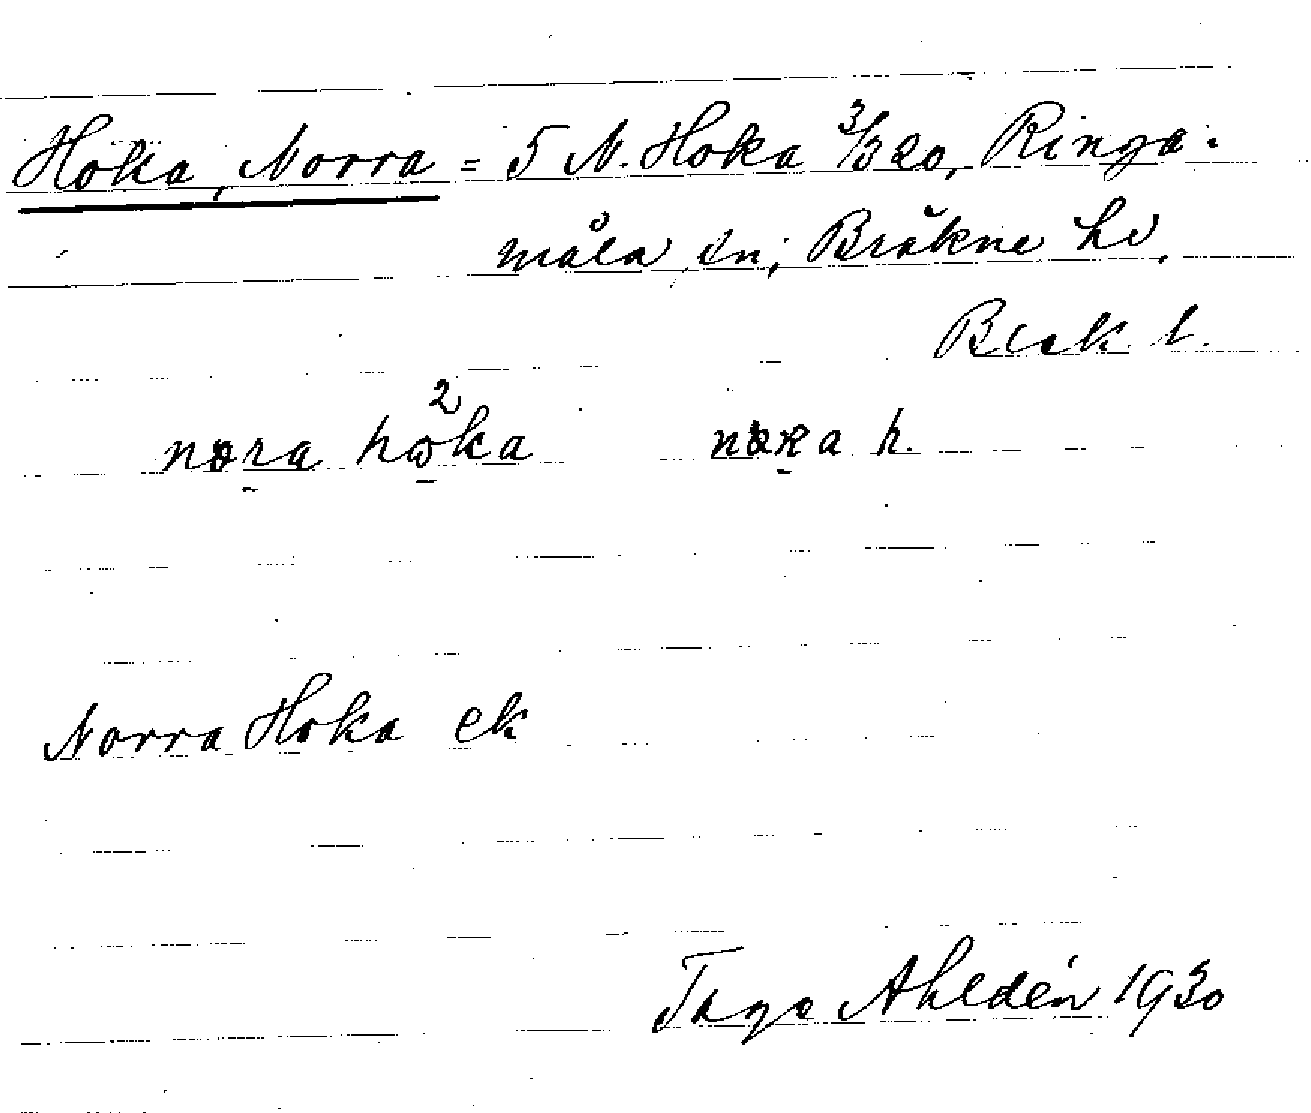 Hoka, Norra = 5 N. Hoka 3/320, Ringa-
måla sn; Bräkne hd,
Blek l.
nora hωka nꝍʀa h.
Norra Hoka ek
Tage Ahldén 1930